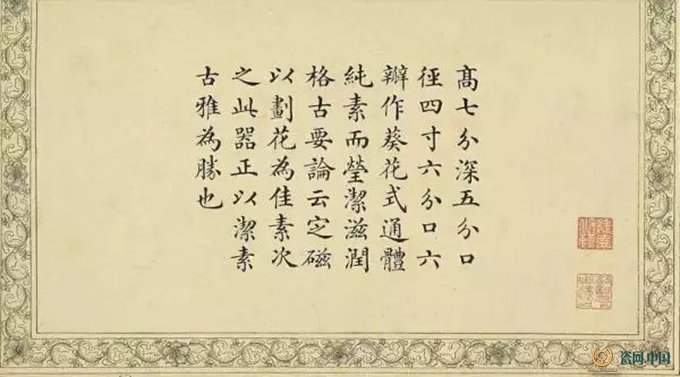 高七分深五分口
徑四寸六分口六
瓣作葵花式通體
純素而瑩潔滋潤
格古要論云定磁
以劃花為佳素次
之此器正以潔素
古雅為勝也
瓷网.中国